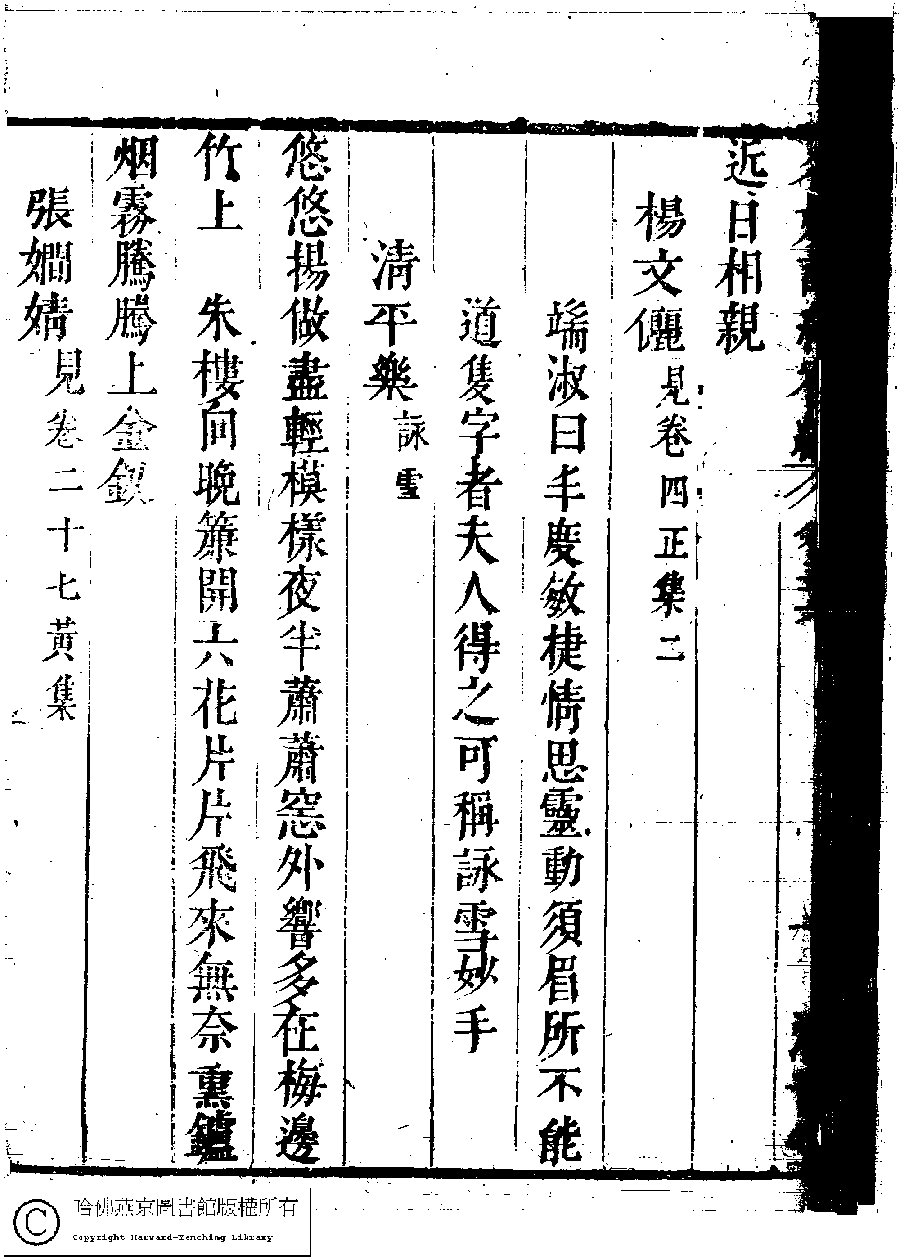 近日相親
楊文儷見卷四正集二
端淑曰丰度敏捷情思靈動須眉所不能
道隻字者夫人得之可稱詠雪妙手
清平樂詠雪
悠悠揚揚做盡輕模樣夜半蕭蕭窓外響多在梅邊
竹上　朱樓向晚簾開六花片片飛來無奈熏鑪
烟霧騰騰上金釵
張嫺婧見卷二十七黃集
哈佛燕京圖書館版權所有
Copyright Harvard-Yenching Library